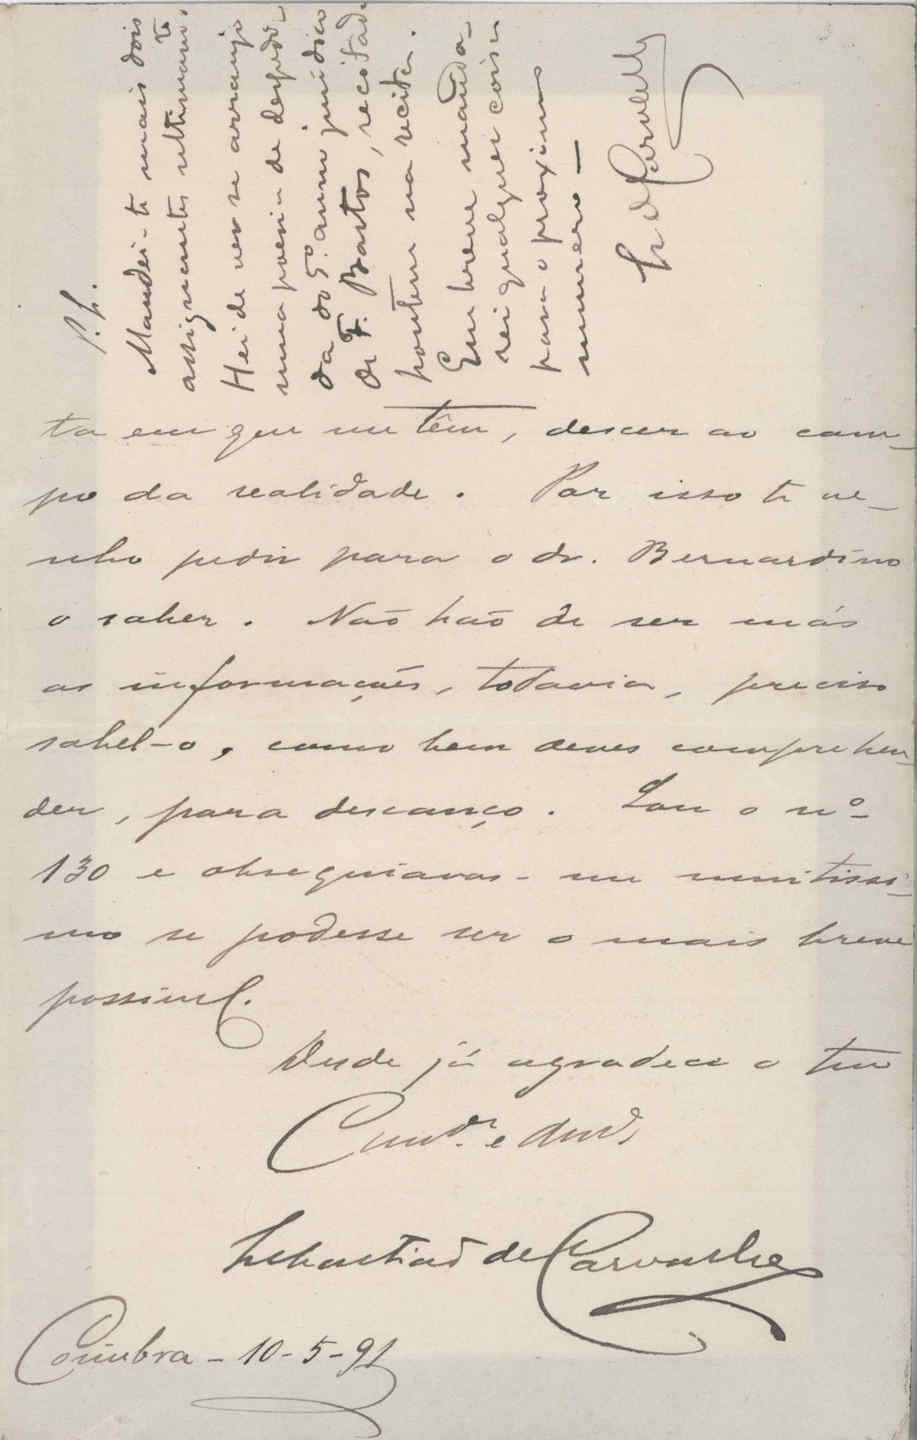 ta em que me têm, descer ao cam-
po da realidade. Por isso te ve-
nho pedir para o dr. Bernardino
o saber. Não hão de ser más
as informações, todavia, preciso
sabel-o, como bem deves comprehen-
der, para descanço. Sou o nº
130 e obsequiavas-me muitissi-
mo se podesse ser o mais breve
possivel.
Desde já agradece o teu
Cond.ª e Amº
Sebastião de Carvalho
Coimbra - 10-5-91
P.S.
Mandei-te mais dois
assignantes ultimamte.
Hei de ver se arranjo
uma poesia de despedi-
da do 5º. anno juridico
de F. Bastos, recitada
hontem na recita.
Em breve manda-
rei qualquer coisa
para o proximo
numero —
S. de Carvalho